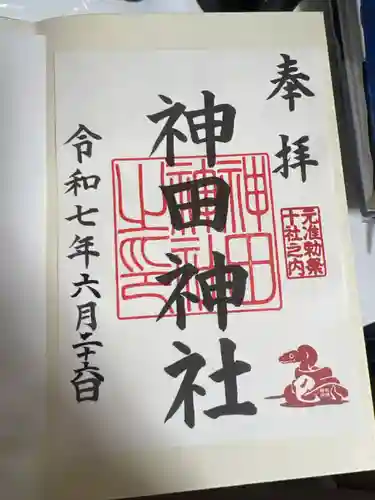 奉拝
元准勅祭
十社之内
神田神社
神田
神社
之印
令和七年六月二十六日